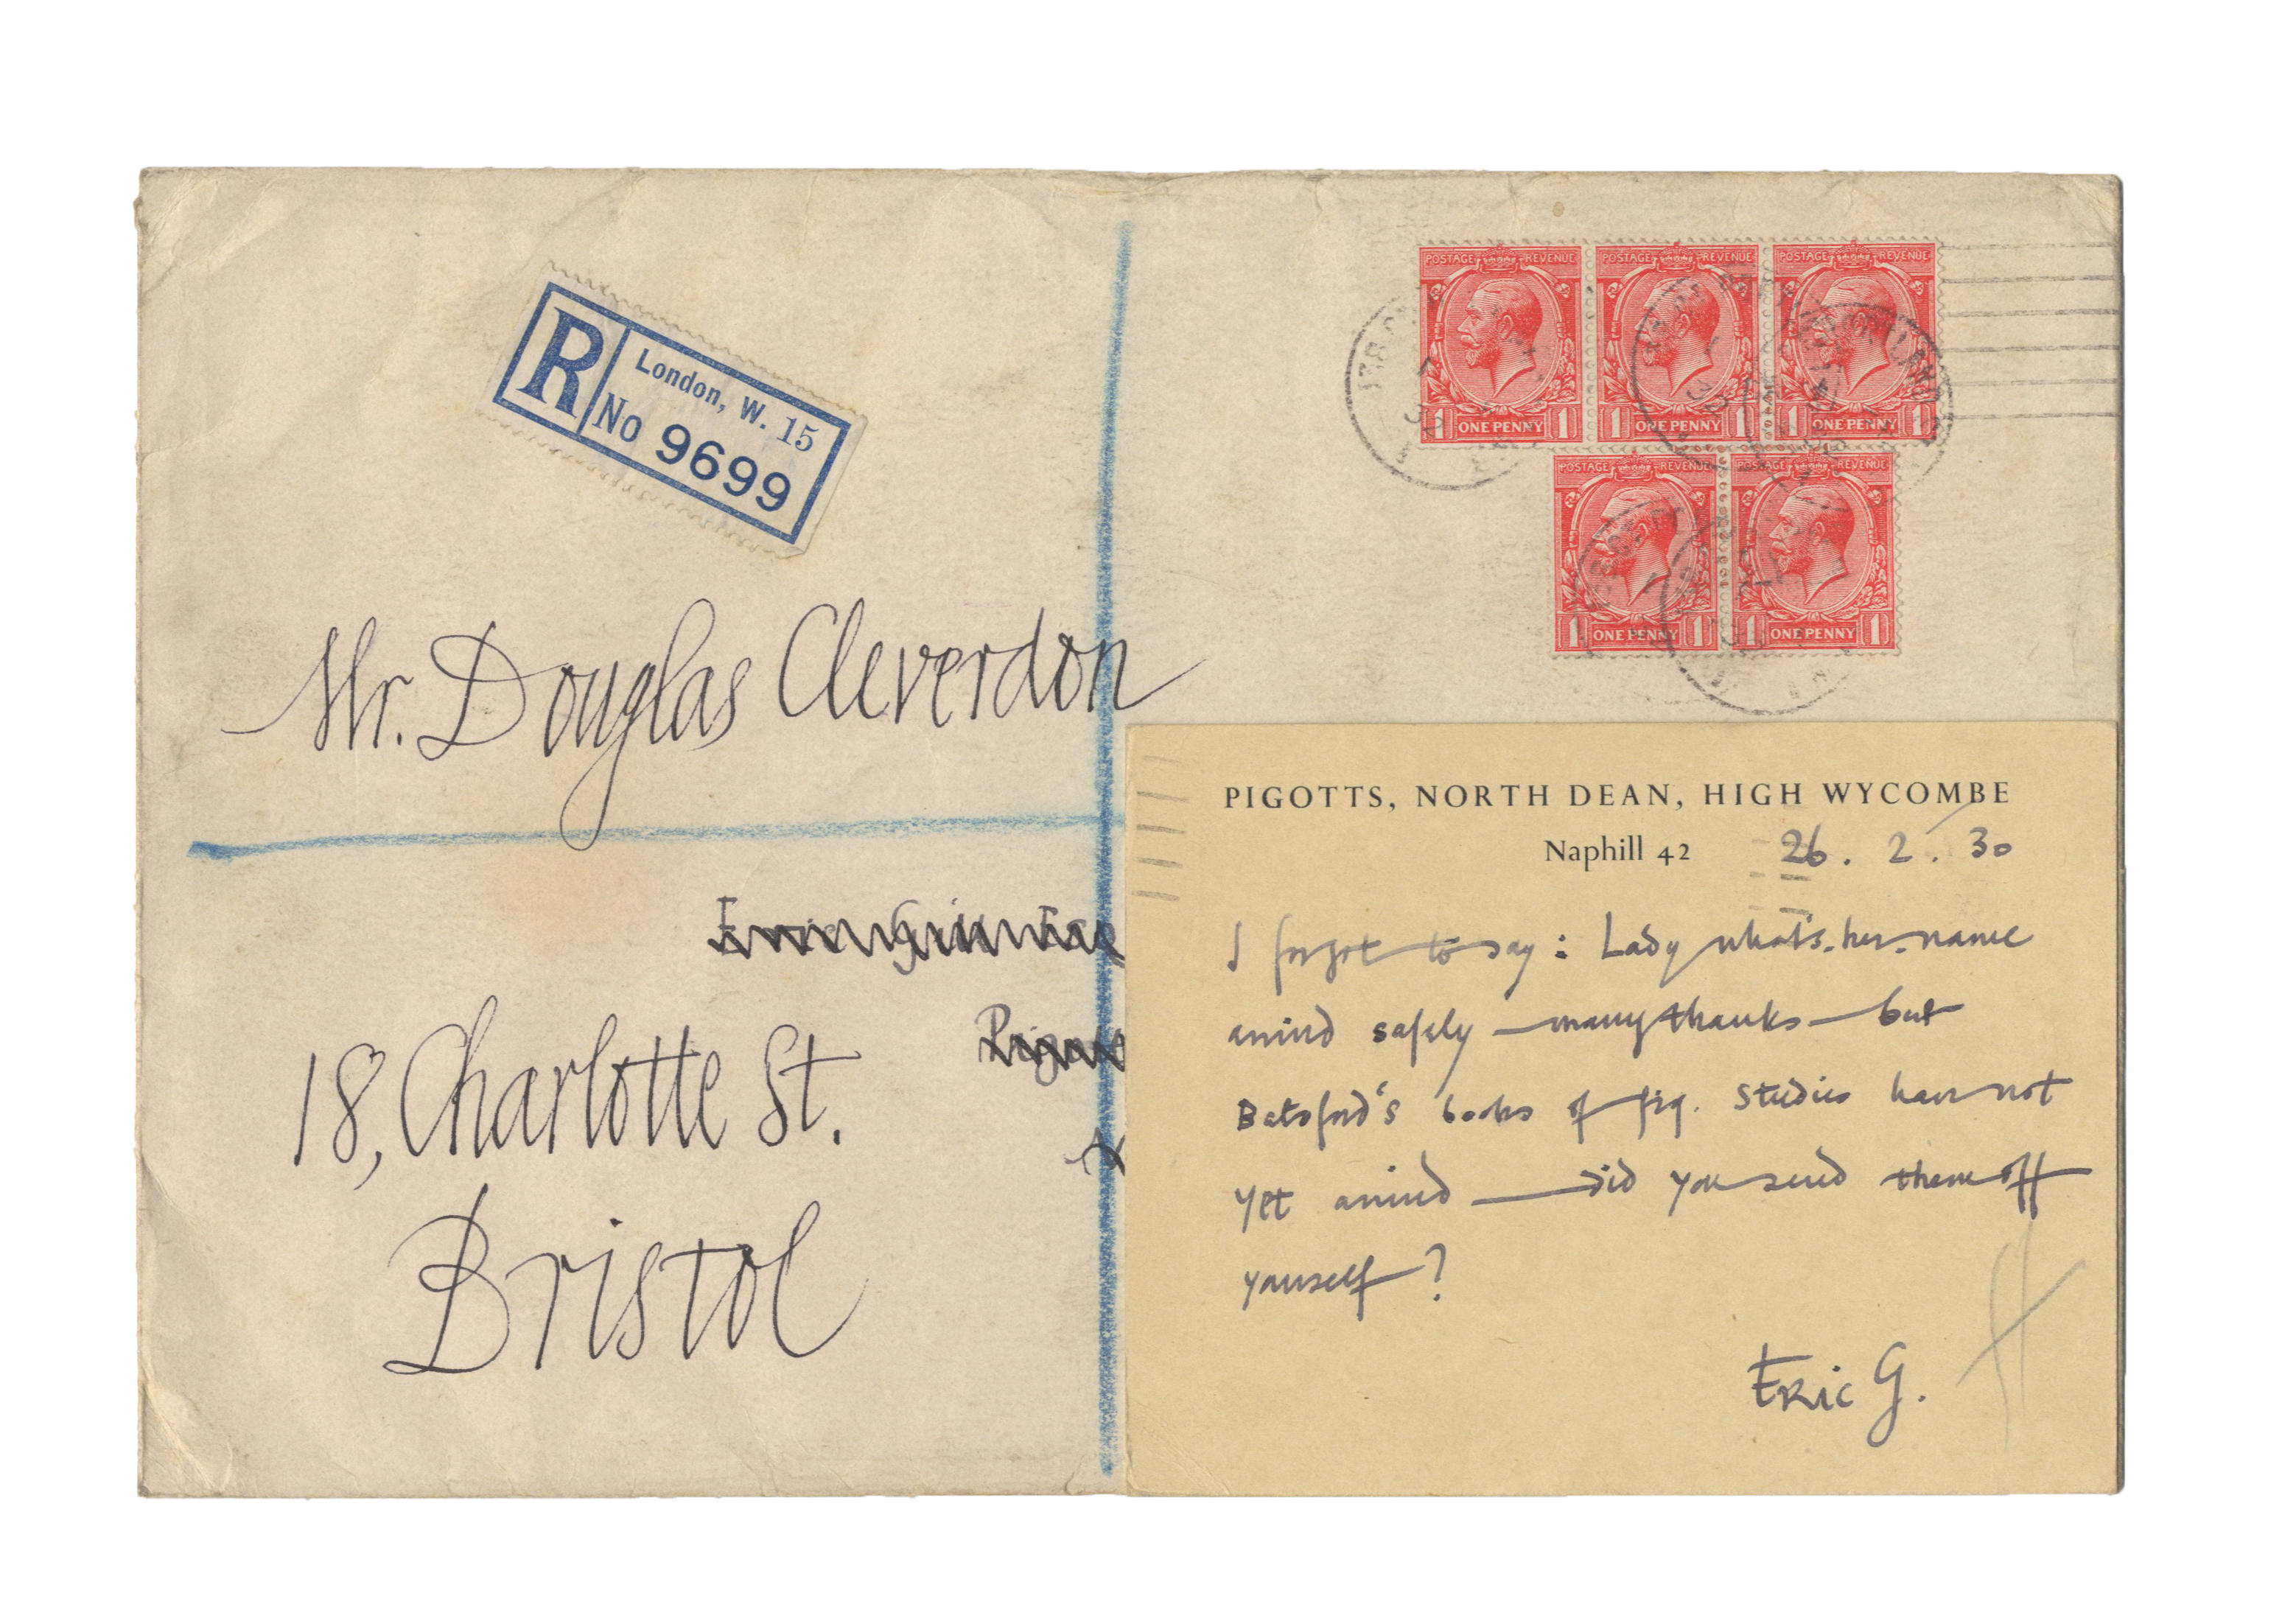 R
London, W. 15
No 9699
POSTAGE REVENUE
POSTAGE REVENUE
POSTAGE REVENUE
1 ONE PENNY 1
1 ONE PENNY 1
1 ONE PENNY 1
POSTAGE REVENUE
POSTAGE REVENUE
1 ONE PENNY 1
1 ONE PENNY 1
Mr. Douglas Cleverdon
18, Charlotte St.
Bristol
PIGOTTS, NORTH DEAN, HIGH WYCOMBE
Naphill 42 26 . 2 . 30
I forgot to say : Lady what's-her-name
arrived safely — many thanks — but
Batsford's books of fig. studies have not
yet arrived — did you send them off
yourself ?
Eric G.